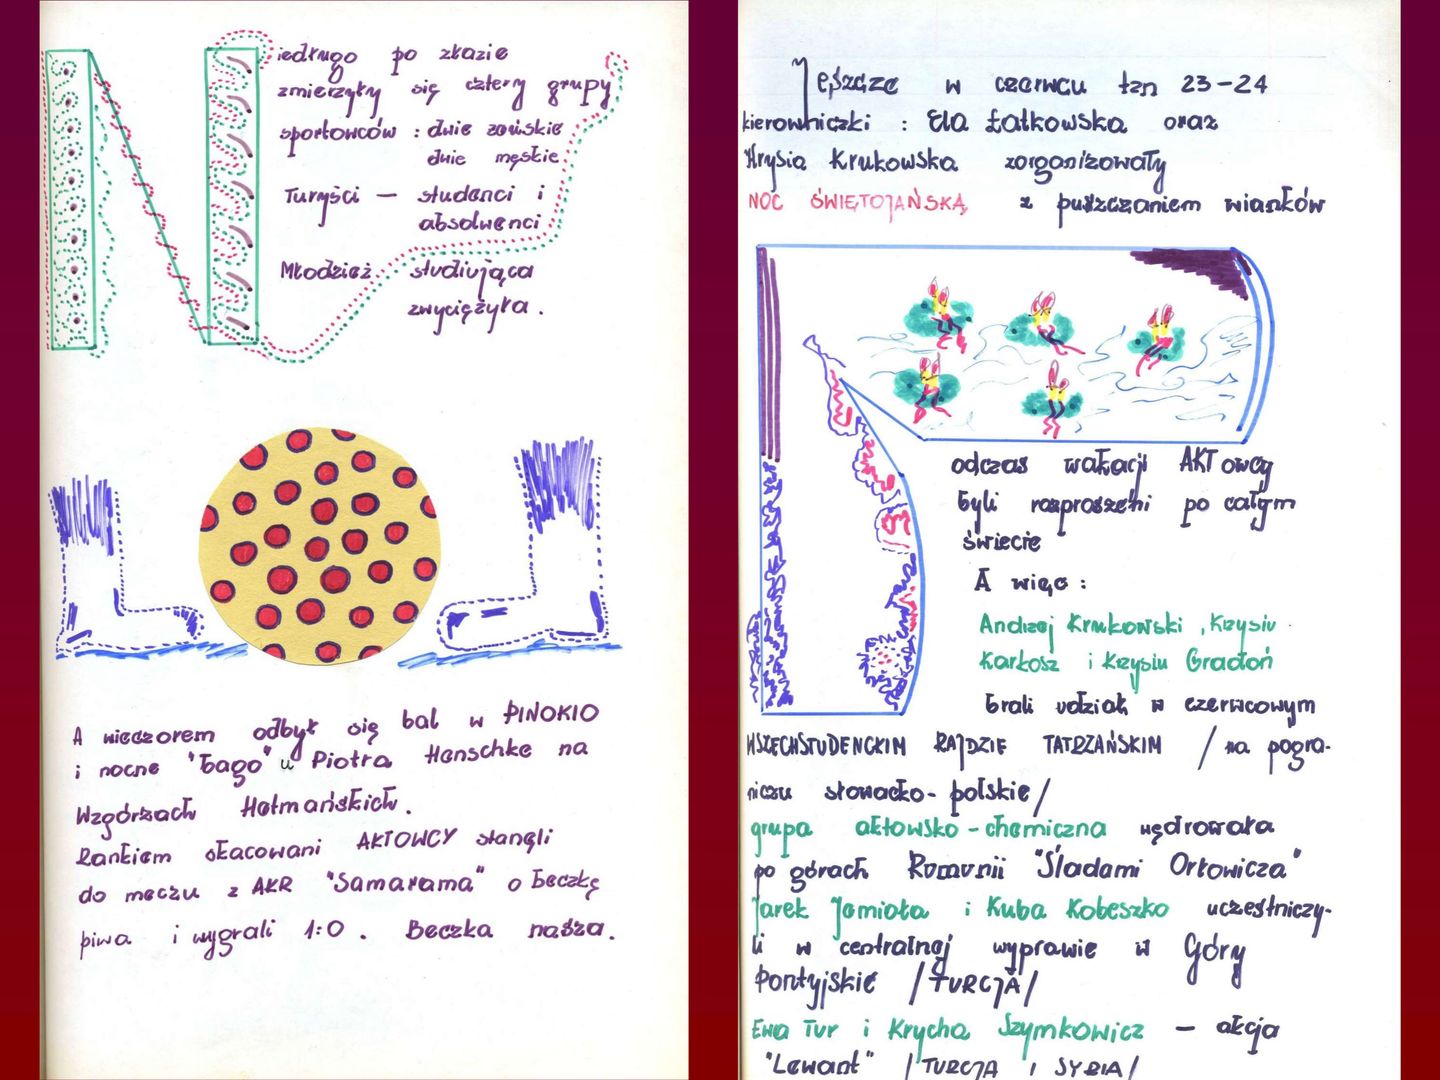 Niedługo po złazie
zmierzyły się cztery grupy
sportowców : dwie żeńskie
dwie męskie
Turyści — studenci i
absolwenci
Młodzież studiująca
zwyciężyła.
A wieczorem odbył się bal w PINOKIO
i nocne "Bago" u Piotra Henschke na
Wzgórzach Hetmańskich.
Rankiem skacowani AKTOWCY stanęli
do meczu z AKR "Samarama" o beczkę
piwa i wygrali 1:0. Beczka nasza.
Jeszcze w czerwcu tzn 23-24
kierowniczki : Ela Łatkowska oraz
Krysia Krukowska zorganizowały
NOC ŚWIĘTOJAŃSKĄ z puszczaniem wianków
Podczas wakacji AKTowcy
byli rozproszeni po całym
świecie
A więc :
Andrzej Krukowski, Krzysiu
Karkosz i Krzysiu Gradoń
brali udział w czerwcowym
WSZECHSTUDENCKIM RAJDZIE TATRZAŃSKIM / na pogra-
niczu słowacko-polskie/
grupa aktowsko-chemiczna wędrowała
po górach Rumunii "Śladami Orłowicza"
Jarek Jemioła i Kuba Kobeszko uczestniczy-
li w centralnej wyprawie w Góry
Pontyjskie /TURCJA/
Ewa Tur i Krycha Szymkowicz — akcja
"Lewant" /TURCJA i SYRIA/